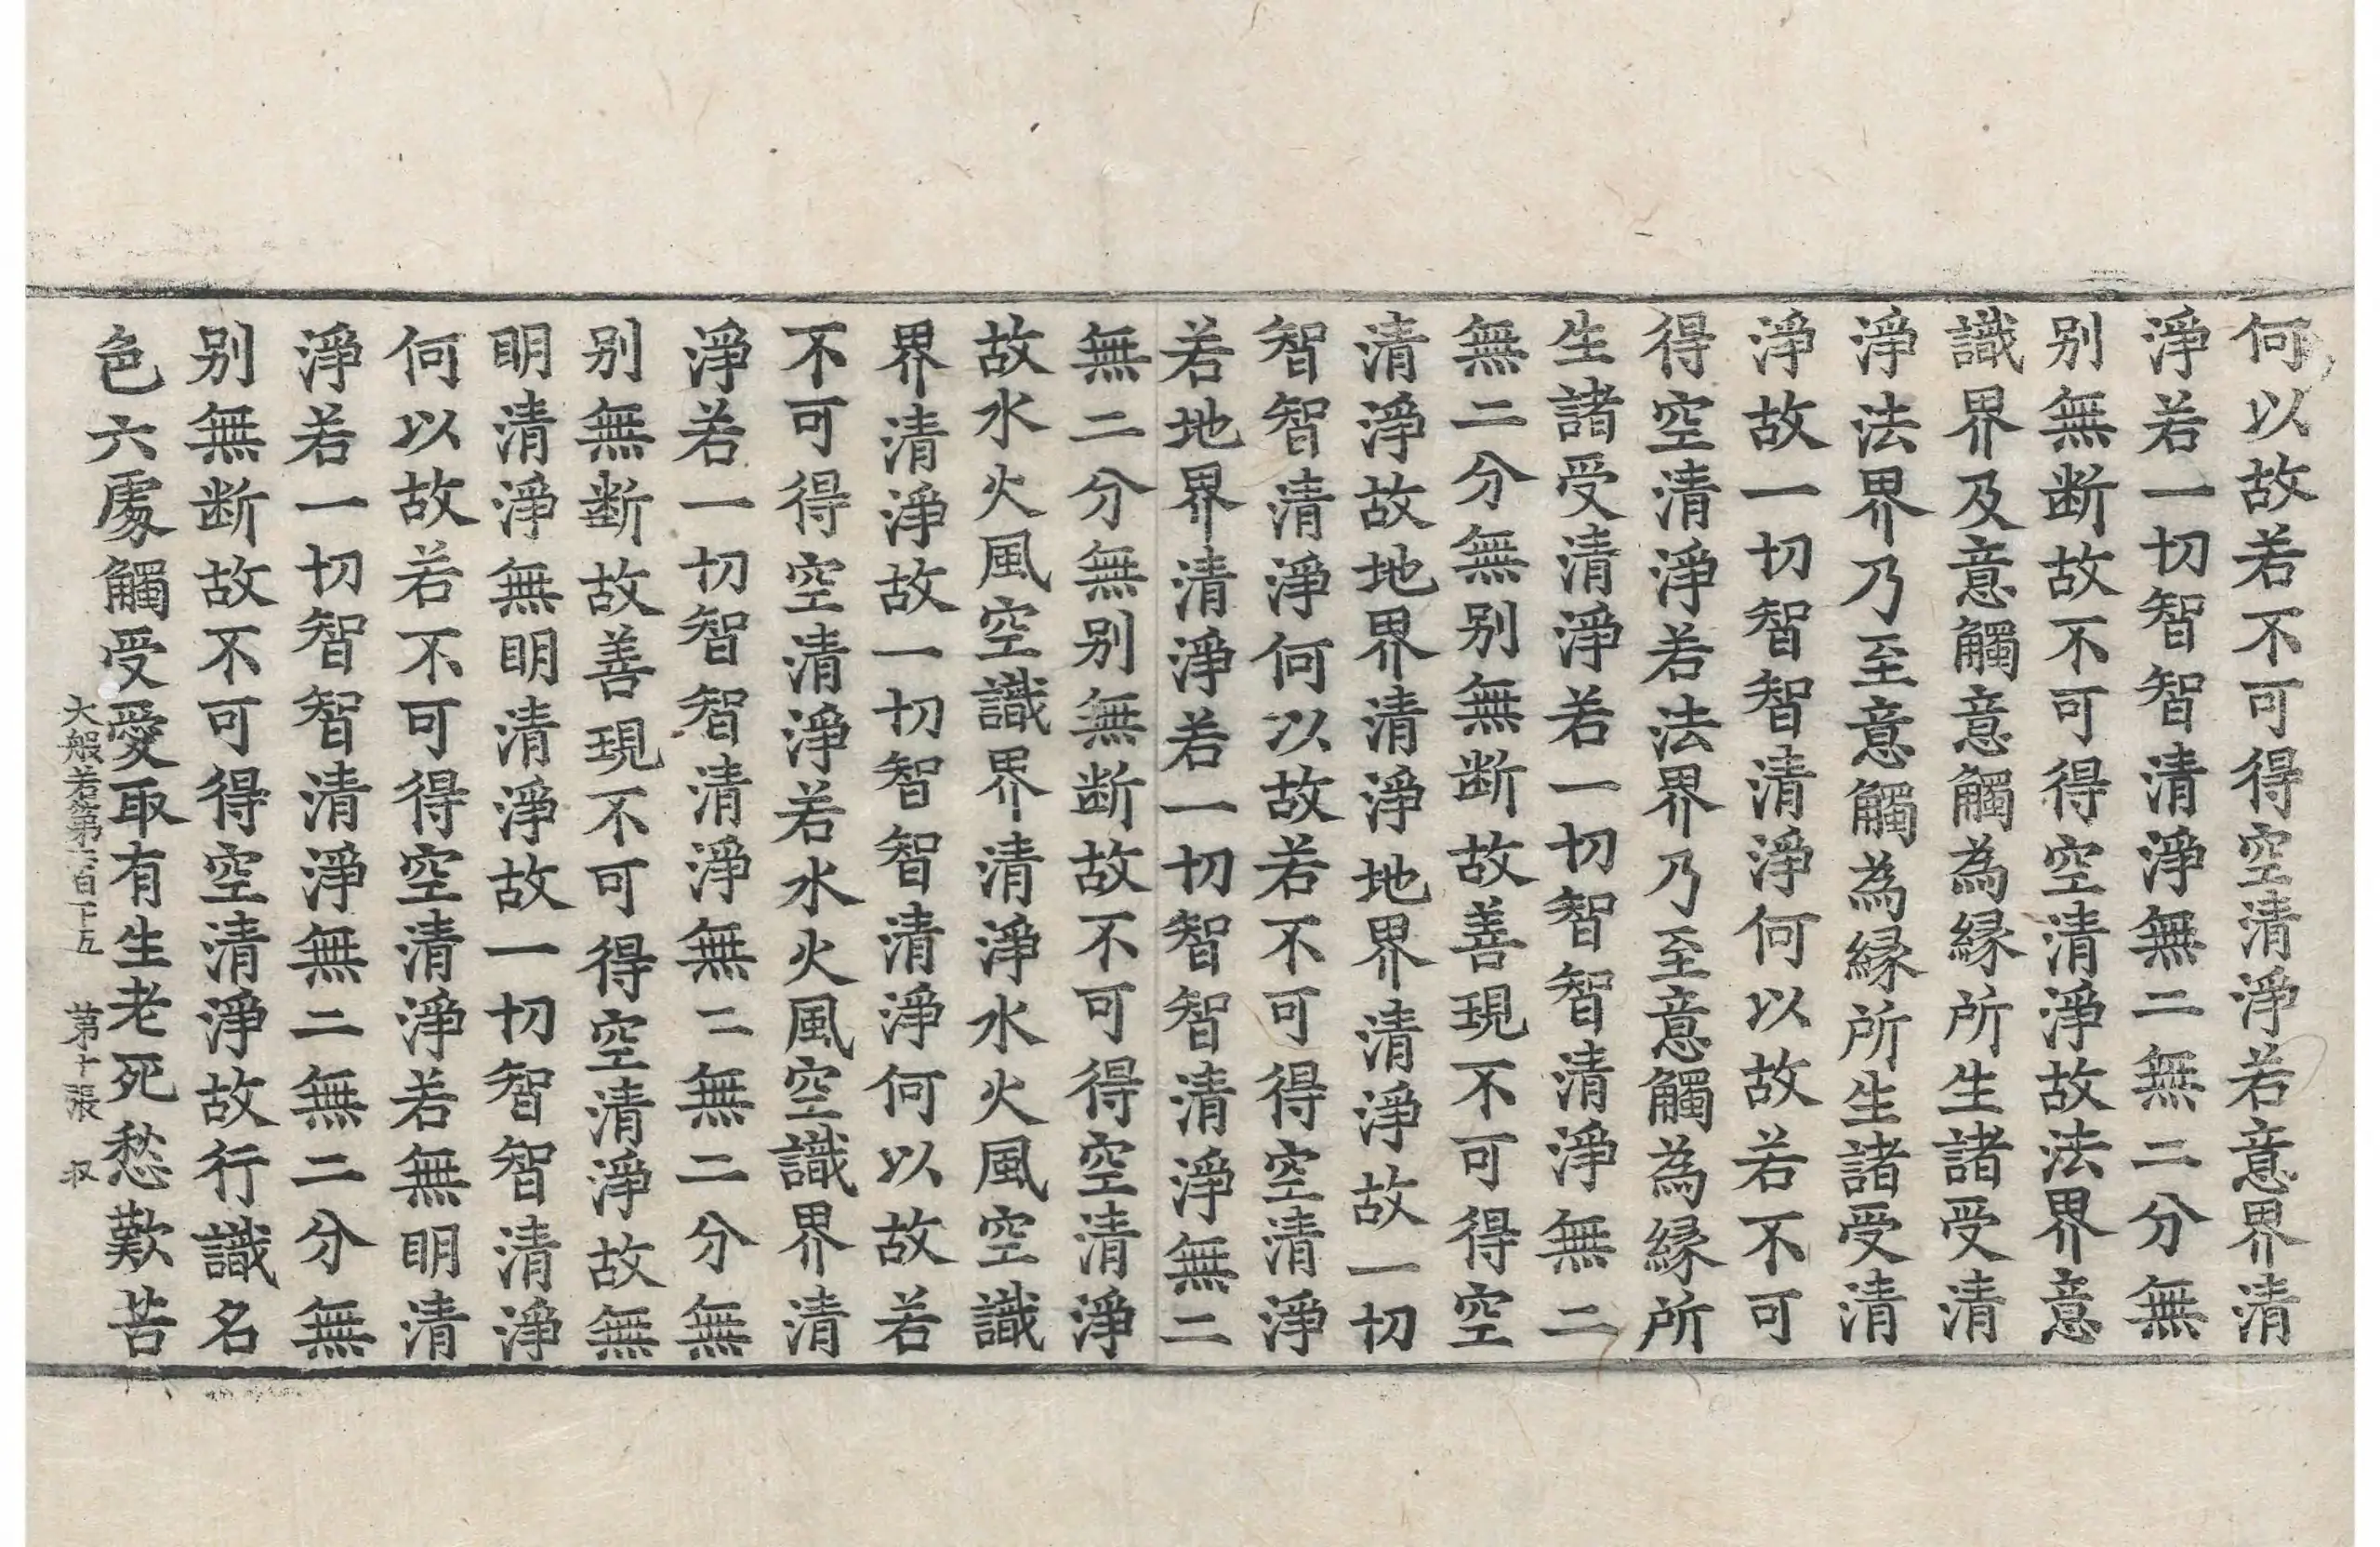 何以故若不可得空清淨若意界清
淨若一切智智清淨無二無二分無
别無断故不可得空清淨故法界意
識界及意觸意觸為縁所生諸受清
淨法界乃至意觸為縁所生諸受清
淨故一切智智清淨何以故若不可
得空清淨若法界乃至意觸為縁所
生諸受清淨若一切智智清淨無二
無二分無别無断故善現不可得空
清淨故地界清淨地界清淨故一切
智智清淨何以故若不可得空清淨
若地界清淨若一切智智清淨無二
無二分無别無断故不可得空清淨
故水火風空識界清淨水火風空識
界清淨故一切智智清淨何以故若
不可得空清淨若水火風空識界清
淨若一切智智清淨無二無二分無
别無断故善現不可得空清淨故無
明清淨無明清淨故一切智智清淨
何以故若不可得空清淨若無明清
淨若一切智智清淨無二無二分無
别無断故不可得空清淨故行識名
色六處觸受愛取有生老死愁歎苦
大般若第百五 第十張